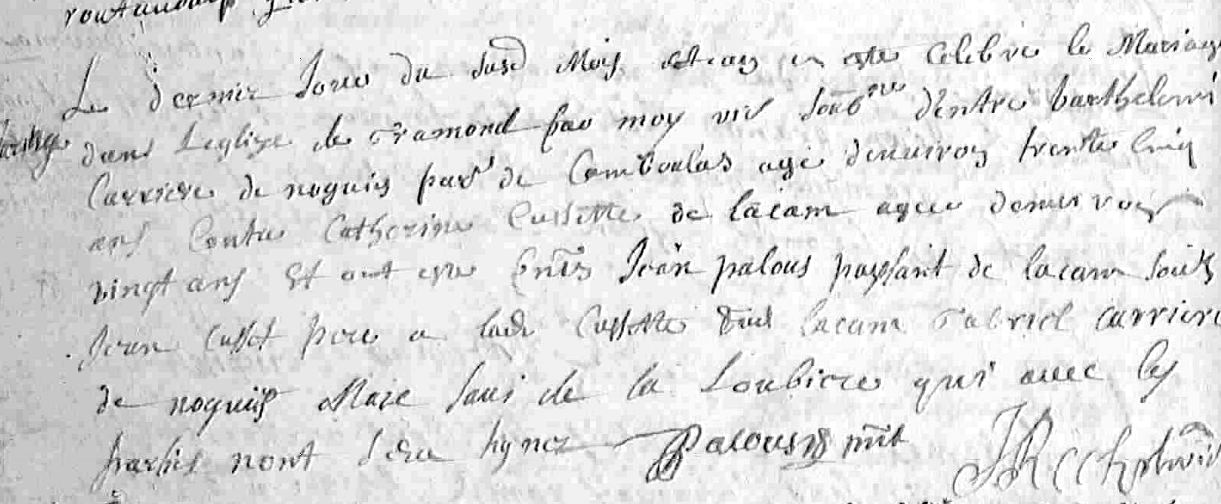 Le dernier Jour du susd Mois et an a este Celebre le Mariage
dans Leglise de Gramond par moy vic soubne dentre barthelemi
Carriere de noguiy parr de Camboulas age denuiron trente Cinq
ans Contre Catherine Cussette de lacam agee denuiron
vingt ans Et ont este pnts Jean palous paysant de lacam
Jean Cusset pere a lade Cussette dud lacam Gabriel Carriere
de noguiy Marc de la Loubiere qui avec les
parties nont sceu signer Palous